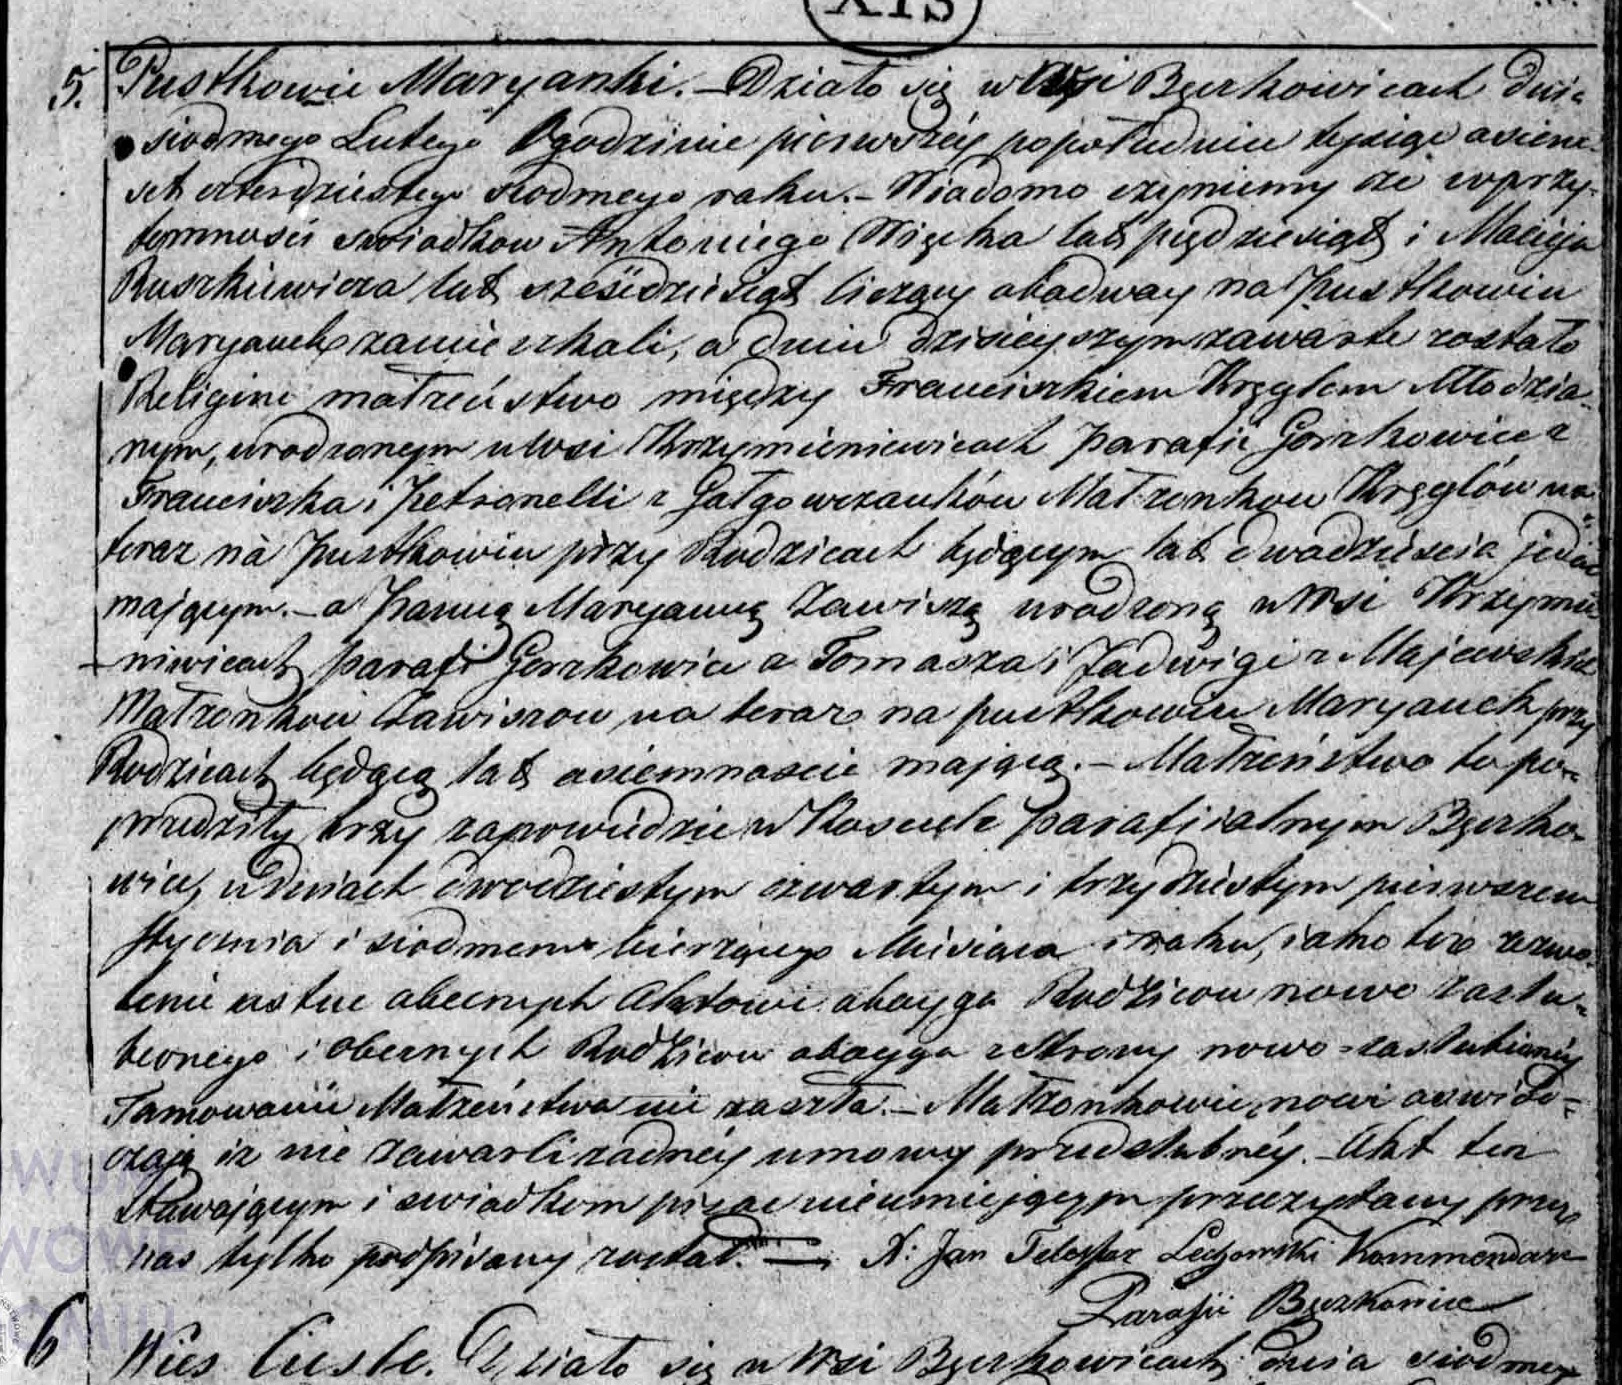 XIS
5. Pustkowie Maryanki. – Działo się w Wsi Bęczkowicach dnia
siodmego Lutego O godzinie pierwszéy popołudniu tysiąc osiem-
set czterdziestego siodmego roku. – Wiadomo czyniemy że w przy-
tomności swiadkow Antoniego Więcka lat pięćdziesiąt i Macieja
Ruszkiewicza lat sześćdziesiąt liczący obadway na Pustkowiu
Maryanek zamieszkali, a dniu dzisieyszym zawarte zostało
Religine małżeństwo między Franciszkiem Kręglem Młodzia-
nym, urodzonym w Wsi Krzymieniewicach parafii Gorzkowice z
Franciszka i Petronelli z Małżonkow Kręglów na
teraz na pustkowiu przy Rodzicach będącym lat dwadzieścia jeden
mającym. – a Panną Maryanną Zawiszą urodzoną w Wsi Krzymie
niwicach parafi Gorzkowice z Tomasza i Jadwigi z Majewskich
Małżonkow Zawiszow na teraz na pustkowiu Maryanek przy
Rodzicach będącą lat osiemnascie mającą. – Małżeństwo to po-
przedziły trzy zapowiedzie w Kosciele parafiialnym Bęczko-
wice, w dniach dwudziestym czwartym i trzydziestym pierwszem
Stycznia i siodmem bierzącego Miesiąca i roku, jako też zezwo-
lenie ustne obecnych Aktowi oboyga Rodzicow nowo zaślu-
bionego i obecnych Rodzicow oboyga z Strony nowo-zaslubionéy
Tamowanie Małżeństwa nie zaszło. – Małżonkowie nowi oswiad-
czają iż nie zawarli żadnéy umowy przedslubnéy. – Akt ten
Stawającym i swiadkom pisac nieumiejącym przeczytany przez
nas tylko podpisany został. — X: Jan Telesfor Kommendarz
Parafii Bęczkowice
6 Wies Cieśle. Działo się w Wsi Bęczkowicach dnia siodmego